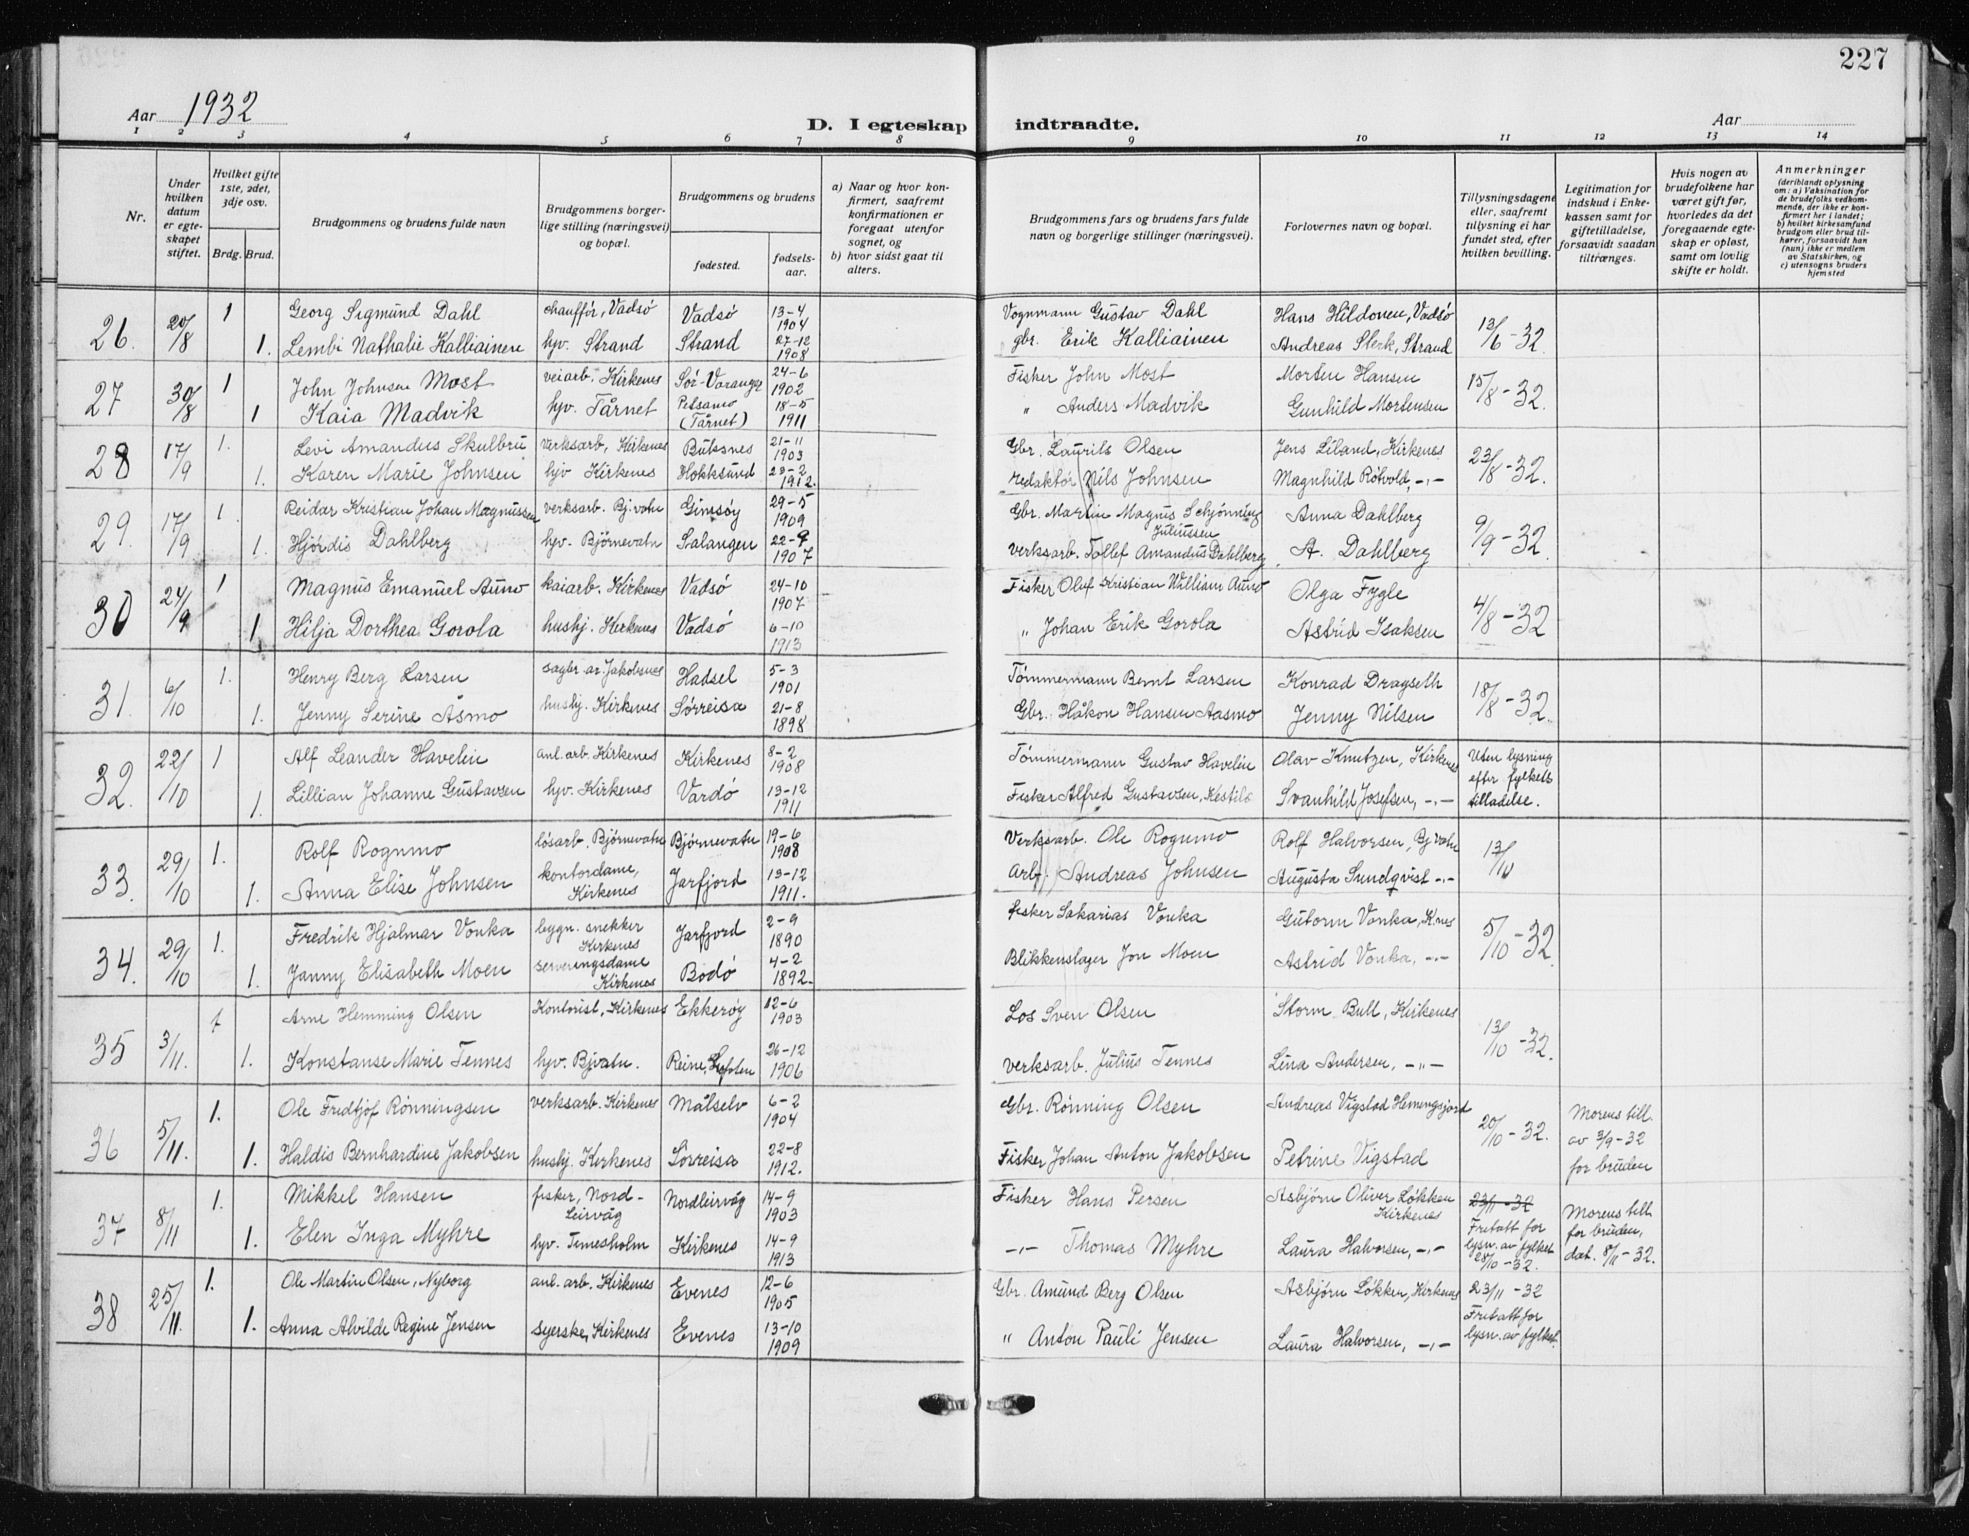 227
Aar 1932
D. I egteskap indtraadte.
Aar
1 2 3 4 5 6 7 8 9 10 11 12 13 14
Nr.
Under hvilken datum er egteskapet stiftet.
Hvilket gifte 1ste, 2det, 3dje osv.
Brdg. Brud.
Brudgommens og brudens fulde navn
Brudgommens borgerlige stilling (næringsvei) og bopæl.
Brudgommens og brudens
fødested.
fødselsaar.
a) Naar og hvor konfirmert, saafremt konfirmationen er foregaat utenfor sognet, og
b) hvor sidst gaat til alters.
Brudgommens fars og brudens fars fulde navn og borgerlige stillinger (næringsvei).
Forlovernes navn og bopæl.
Tillysningsdagene eller, saafremt tillysning ei har fundet sted, efter hvilken bevilling.
Legitimation for indskud i Enkekassen samt for giftetilladelse, forsaavidt saadan tiltrænges.
Hvis nogen av brudefolkene har været gift før, hvorledes da det foregaaende egteskap er opløst, samt om lovlig skifte er holdt.
Anmerkninger (deriblandt oplysning om: a) Vaksination for de brudefolks vedkommende, der ikke er konfirmert her i landet; b) hvilket kirkesamfund brudgom eller brud tilhører, forsaavidt han (hun) ikke er medlem av Statskirken, og c) utensogns bruders hjemsted
26. 20/8 1 Georg Sigmund Dahl chauffør, Vadsø Vadsø 13-4 1904 Vognmann Gustav Dahl Hans Hildonen, Vadsø 13/6-32
1. Lembi Nathalie Kalliainen hjv. Strand Strand 27-12 1908 gbr. Erik Kalliainen Andreas Sterk, Strand
27 30/8 1 John Johnsen Most veiarb. Kirkenes Sør-Varanger 24-6 1902 Fisker John Most Morten Hansen 15/8-32.
1 Kaia Madvik hjv. Tårnet Petsamo (Tårnet) 18-5 1911 " Anders Madvik Gunhild Mortensen
28 17/9 1. Levi Amandus Skulbru verksarb, Kirkenes Buksnes 21-11 1903 Gbr. Laurits Olsen Jens Liland, Kirkenes 23/8-32.
1. Karen Marie Johnsen hjv Kirkenes Hokksund 23-2 1912. redaktør Nils Johnsen Magnhild Røtvold, -„-
29. 17/9 1. Reidar Kristian Johan Magnussen verksarb. Bj.vatn Gimsøy 29-5 1909 Gbr. Martin Magnus Schjønning Juliussen Anna Dahlberg 9/9-32
1. Hjørdis Dahlberg hjv. Bjørnevatn Salangen 22-9 1907 verksarb. Tollef Amandus Dahlberg A. Dahlberg
30 24/9 1 Magnus Emanuel Auno kaiarb. Kirkenes Vadsø 24-10 1907 Fisker Oluf Kristian William Auno Olga Fygle 4/8-32
1 Hilja Dorthea Gorola hushj. Kirkenes Vadsø 6-10 1913 " Johan Erik Gorola Astrid Isaksen
31. 6/10 1. Henry Berg Larsen sagbr.ar. Jakobsnes Hadsel 5-3 1901 Tømmermann Bernt Larsen Konrad Dragseth 18/8-32.
1. Jenny Serine Åsmo hushj. Kirkenes Sørreisa 21-8 1898 Gbr. Håkon Hansen Aasmo Jenny Nilsen
32. 22/10 1 Alf Leander Havelin anl. arb. Kirkenes Kirkenes 8-2 1908 Tømmermann Gustav Havelin Olav Knutzen, Kirkenes Uten lysning efter fylkets tilladelse.
1. Lillian Johanne Gustavsen hjv. Kirkenes Vardø 13-12 1911 Fisker Alfred Gustavsen, Kestilä Svanhild Josefsen, -„-
33. 29/10 1. Rolf Rognmo løsarb. Bjørnevatn Bjørnevatn 19-6 1908 Verksarb. Ole Rognmo Rolf Halvorsen, Bj vatn 13/10
1. Anna Elise Johnsen kontordame, Kirkenes Jarfjord 13-12 1911. Arb. Andreas Johnsen Augusta Sundqvist -„-
34. 29/10 1. Fredrik Hjalmar Vonka bygn. snekker Kirkenes Jarfjord 2-9 1890 fisker Sakarias Vonka Gutorm Vonka, Knes 5/10-32.
1. Janny Elisabeth Moen serveringsdame Kirkenes Bodø 4-2 1892. Blikkenslager Jon Moen Astrid Vonka, -„-
35 3/11. 1 Arne Hemming Olsen Kontorist, Kirkenes Ekkerøy 12-6 1903 Los Sven Olsen Storm Bull, Kirkenes 13/10-32.
1. Konstanse Marie Tennes hjv. Bjvatn. Reine, Lofoten 26-12 1906 verksarb. Julius Tennes Lina Andersen, -„-
36 5/11. 1. Ole Fredtjof Rønningsen verksarb. Kirkenes Målselv 6-2 1904 Gbr. Rønning Olsen Andreas Vigstad Hemingsjord 20/10-32. Morens till. av 3/9-32 for bruden
1. Haldis Bernhardine Jakobsen hushj. Kirkenes Sørreisa 22-8 1912. Fisker Johan Anton Jakobsen Petrine Vigstad
37 8/11 1. Mikkel Hansen fisker, Nord-Leirvåg Nordleirvåg 14-9 1903 Fisker Hans Persen Asbjørn Oliver Løkken Kirkenes 23/11-32 Fritatt for lysn. av fylket 28/10-32. Morens till. for bruden, dat. 8/11-32.
1. Elen Inga Myhre hjv. Timesholm Kirkenes 14-9 1913 -„- Thomas Myhre Laura Halvorsen, -„-
38 25/11. 1. Ole Martin Olsen, Nyborg anl. arb. Kirkenes Evenes 12-6 1905 Gbr. Amund Berg Olsen Asbjørn Løkken, Kirkenes 23/11-32 Fritatt for lysn. av fylket.
1. Anna Alvilde Regine Jensen syerske, Kirkenes Evenes 13-10 1909 " Anton Pauli Jensen Laura Halvorsen, -„-